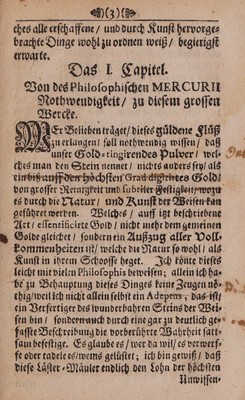 (3)
ches alle erschaffene/ und durch Kunst hervorge-
brachte Dinge wohl zu ordnen weiß/ begierigst
erwarte.
Das I. Capitel.
Von des Philosophischen MERCURII
Nothwendigkeit/ zu diesem grossen
Wercke.
Wer Belieben träget/ dieses güldene Flüß
zu erlangen/ soll nothwendig wissen/ daß
unser Gold-tingirendes Pulver/ wel-
ches man den Stein nennet/ nichts anders sey/ als
ein biß auff den höchsten Grad digerirtes Gold/
von grosser Reinigkeit und subtiler Festigkeit/ wozu
es durch die Natur/ und Kunst der Weisen kan
geführet werden. Welches/ auff itzt beschriebene
Art/ essentificirte Gold/ nicht mehr dem gemeinen
Golde gleichet/ sondern ein Außzug aller Voll-
kommenheiten ist/ welche die Natur so wohl/ als
Kunst in ihrem Schooße heget. Ich könte dieses
leicht mit vielen Philosophis beweisen; allein ich ha-
be zu Behauptung dieses Dinges keine Zeugen nö-
thig/ weil ich nicht allein selbst ein Adeptus, das ist/
ein Verfertiger des wunderbahren Steins der Wei-
sen bin/ sondern auch durch eine gar zu deutlich ge-
faßte Beschreibung die vorberührte Wahrheit satt-
sam befestige. Es glaube es/ wer da wil/ es verwerf-
fe oder tadele es/ wems gelüstet; ich bin gewiß/ daß
diese Läster-Mäuler endlich den Lohn der höchsten
Unwissen-